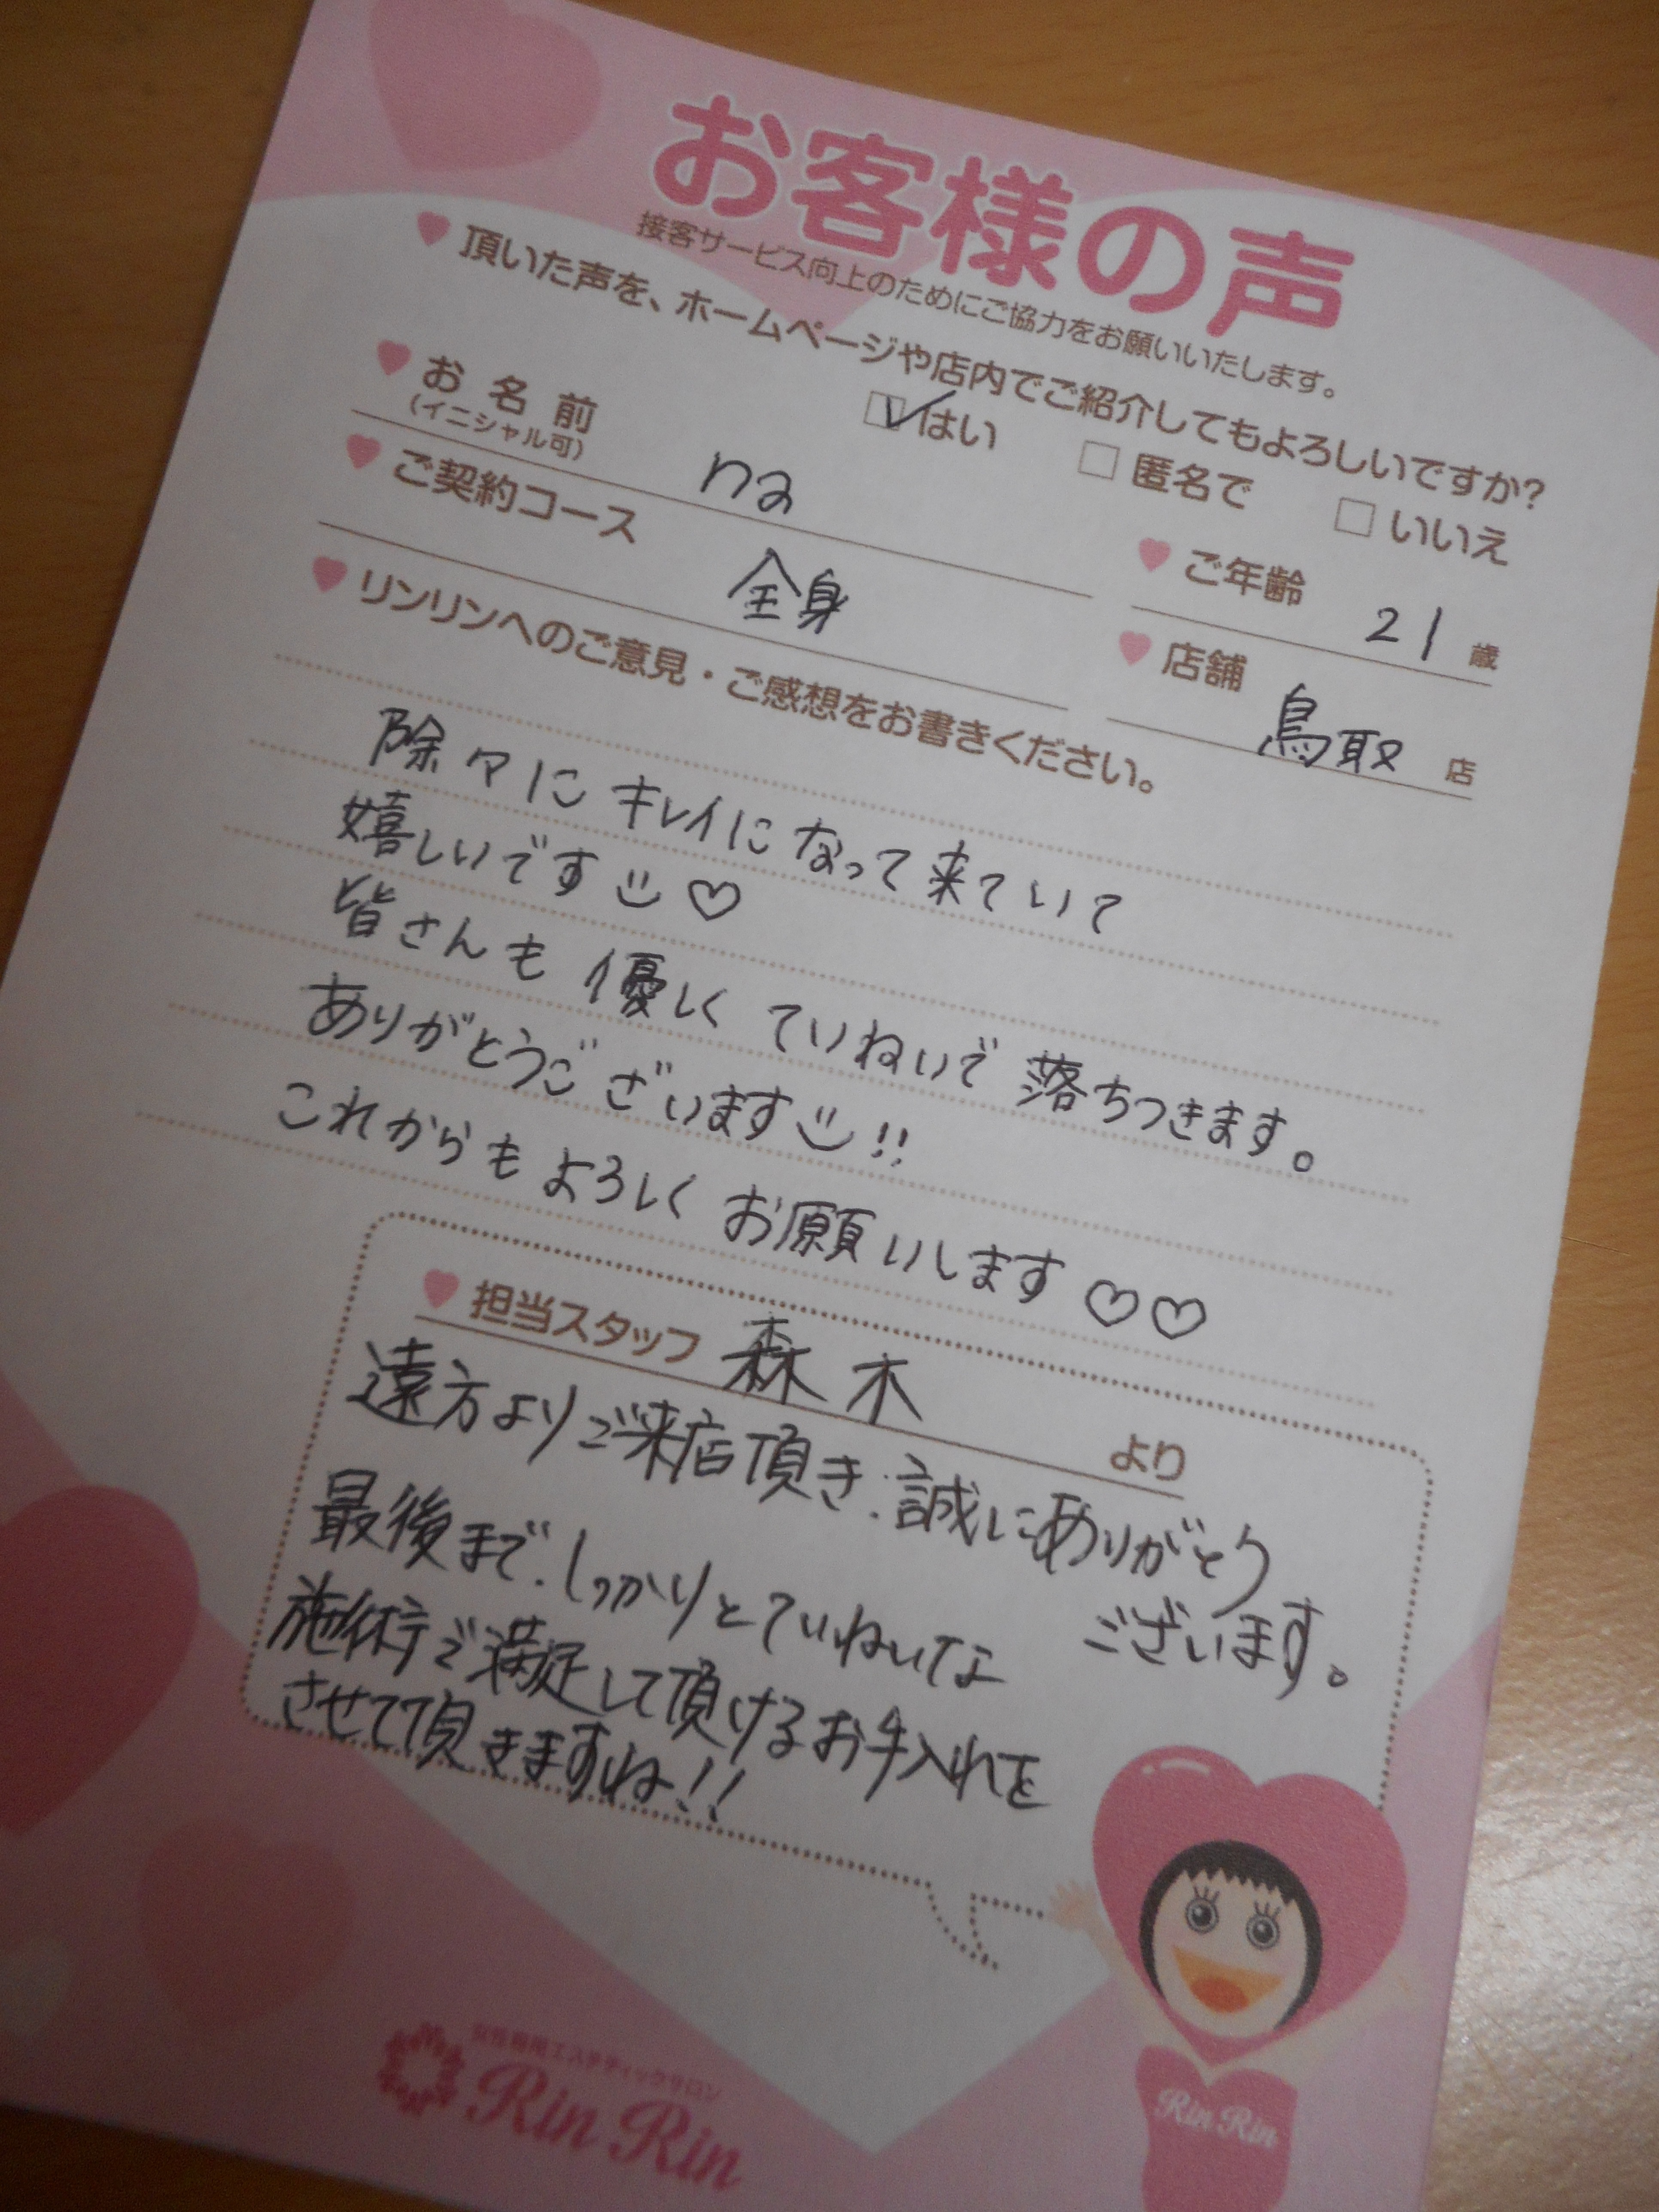 お客様の声
接客サービス向上のためにご協力をお願いいたします。
頂いた声を、ホームページや店内でご紹介してもよろしいですか?
はい 匿名で いいえ
お名前 na
(イニシャル可)
ご年齢 21 歳
ご契約コース 全身
店舗 鳥取 店
リンリンへのご意見・ご感想をお書きください。
除々にキレイになって来ていて
嬉しいです
皆さんも優しくていねいで落ちつきます。
ありがとうございます!!
これからもよろしくお願いします♡♡
担当スタッフ 森木 より
遠方よりご来店頂き、誠にありがとう
ございます。
最後まで、しっかりとていねいな
施術で満足して頂けるお手入れを
させて頂きますね!!
女性専用エステティックサロン
Rin Rin
Rin Rin